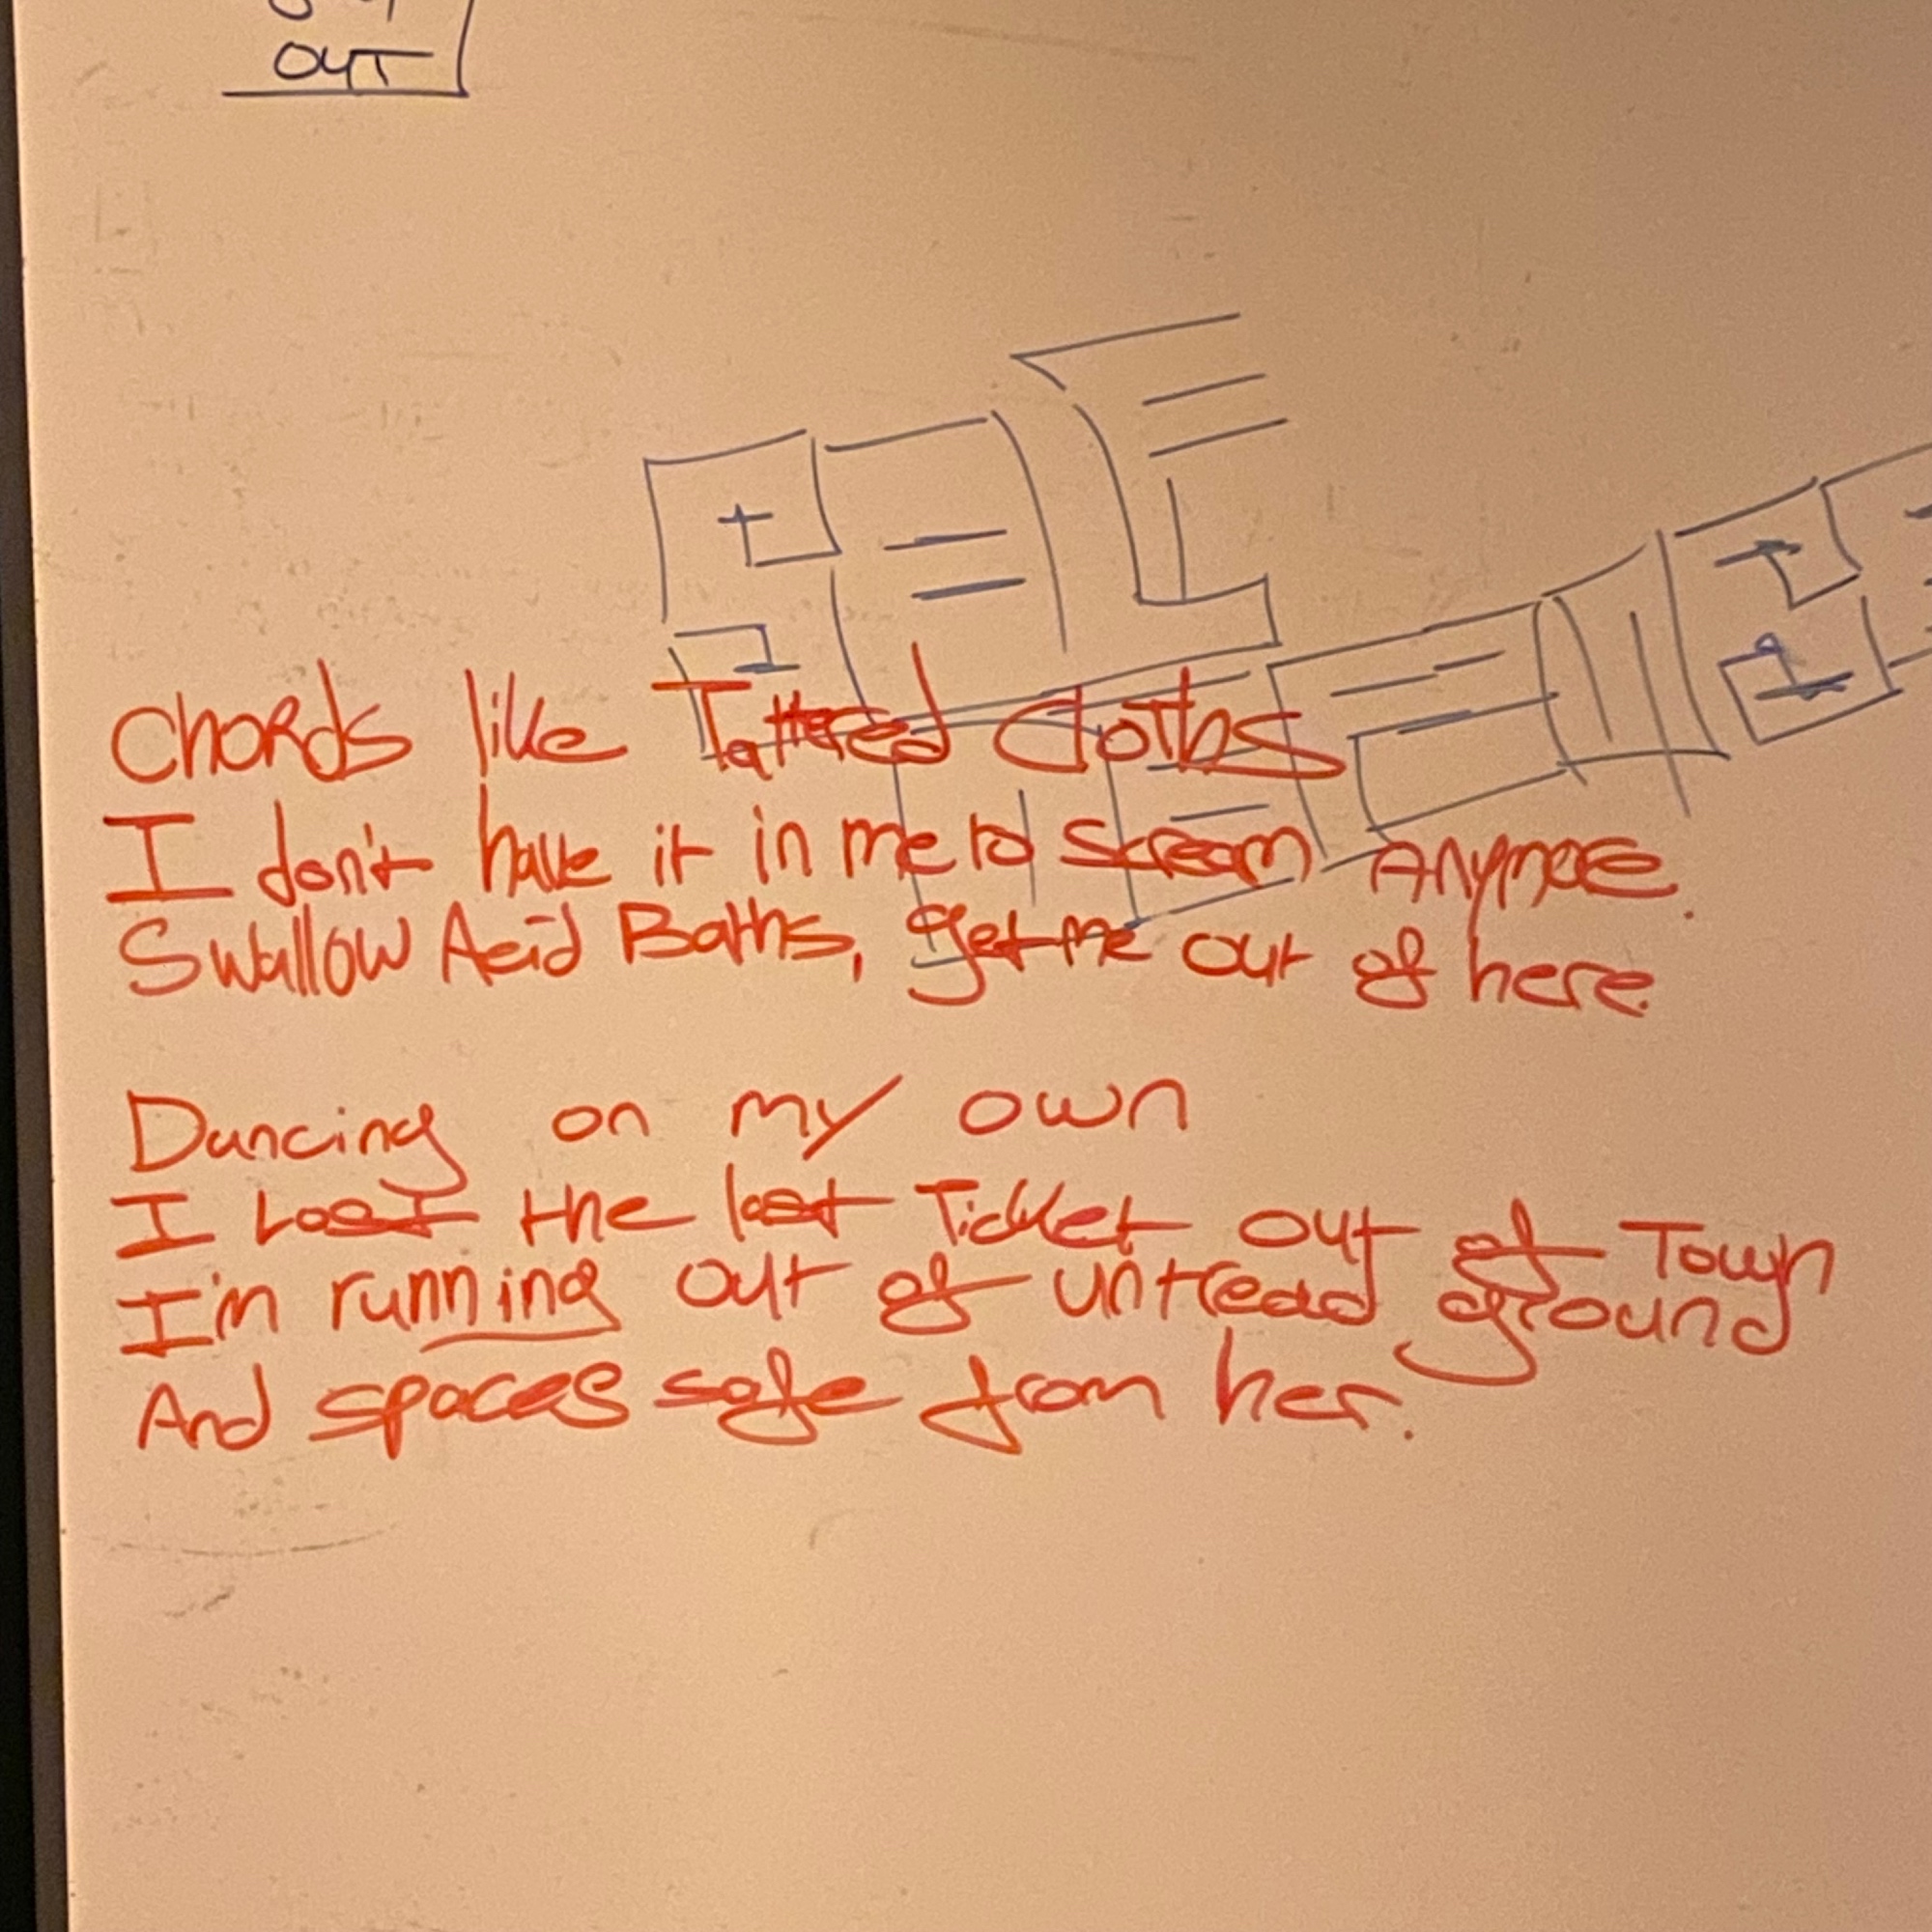 OUT
Chords like Tattered Cloths
I don't have it in me to Scream Anymore.
Swallow Acid Baths, get me out of here.
Dancing on my own
I Lost the last Ticket out of Town
I'm running out of untread ground
And spaces safe from her.